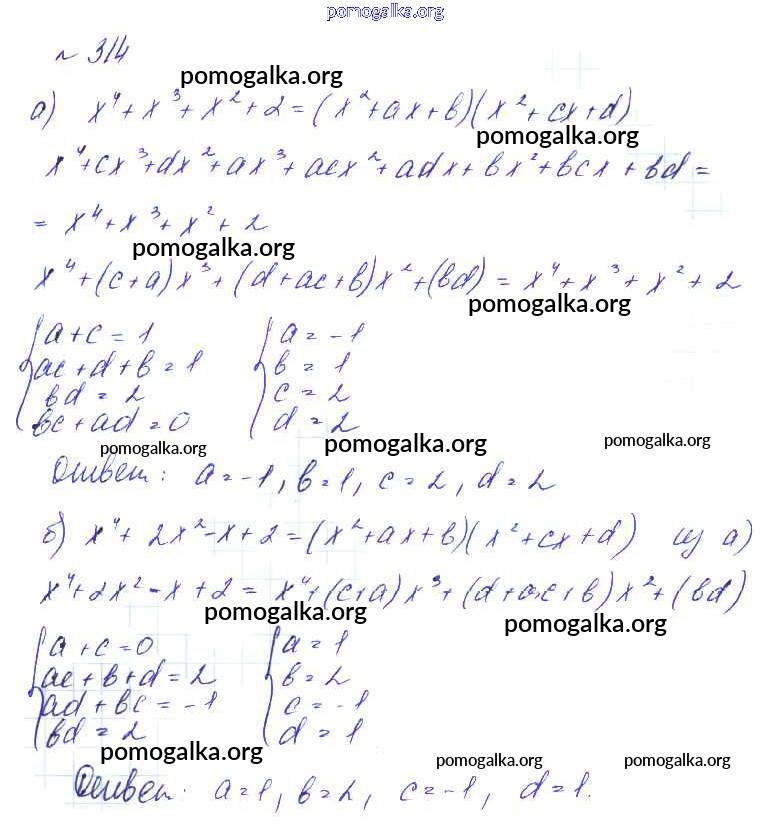 pomogalka.org
№ 314
pomogalka.org
а) x⁴+x³+x²+2=(x²+ax+b)(x²+cx+d)
pomogalka.org
x⁴+cx³+dx²+ax³+acx²+adx+bx²+bcx+bd=
= x⁴+x³+x²+2
pomogalka.org
x⁴+(c+a)x³+(d+ac+b)x²+(bd)=x⁴+x³+x²+2
pomogalka.org
a+c=1 a=-1
ac+d+b=1 b=1
bd=2 c=2
bc+ad=0 d=2
pomogalka.org pomogalka.org pomogalka.org
Ответ: a=-1, b=1, c=2, d=2
б) x⁴+2x²-x+2=(x²+ax+b)(x²+cx+d) из а)
x⁴+2x²-x+2=x⁴+(c+a)x³+(d+ac+b)x²+(bd)
pomogalka.org pomogalka.org
a+c=0 a=1
ac+b+d=2 b=2
ad+bc=-1 c=-1
bd=2 d=1
pomogalka.org pomogalka.org pomogalka.org
Ответ: a=1, b=2, c=-1, d=1.